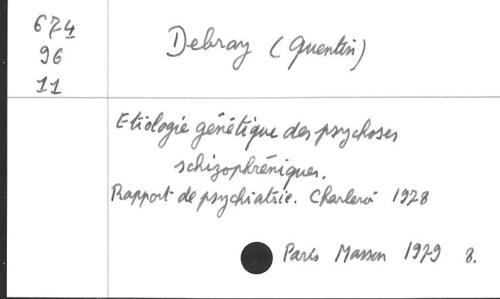 674
96
11
Debray (Quentin)
Etiologie génétique des psychoses
schizophréniques.
Rapport de psychiatrie. Charleroi 1978
Paris Masson 1979 8.